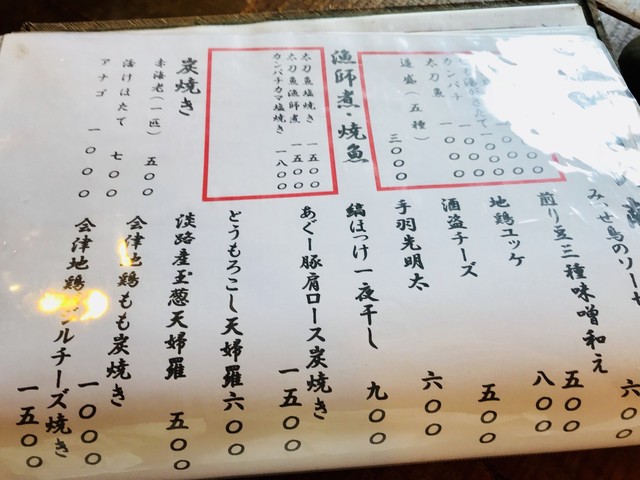 カンパチ 一〇〇〇
太刀魚 一〇〇〇
達盛(五種) 三〇〇〇
漁師煮・焼魚
太刀魚塩焼き 一五〇〇
太刀魚漁師煮 一五〇〇
カンパチカマ塩焼き 一八〇〇
炭焼き
赤海老(一匹) 五〇〇
活けほたて 七〇〇
アナゴ 一〇〇〇
みつせ鳥のソーセ 六〇
煎り豆三種味噌和え 五〇〇
地鶏ユッケ 八〇〇
酒盗チーズ 五〇〇
手羽先明太 六〇〇
縞ほっけ一夜干し 九〇〇
あぐー豚肩ロース炭焼き 一五〇〇
とうもろこし天婦羅 六〇〇
淡路産玉葱天婦羅 五〇〇
会津地鶏もも炭焼き 一〇〇〇
会津地鶏 ルチーズ焼き 一五〇〇